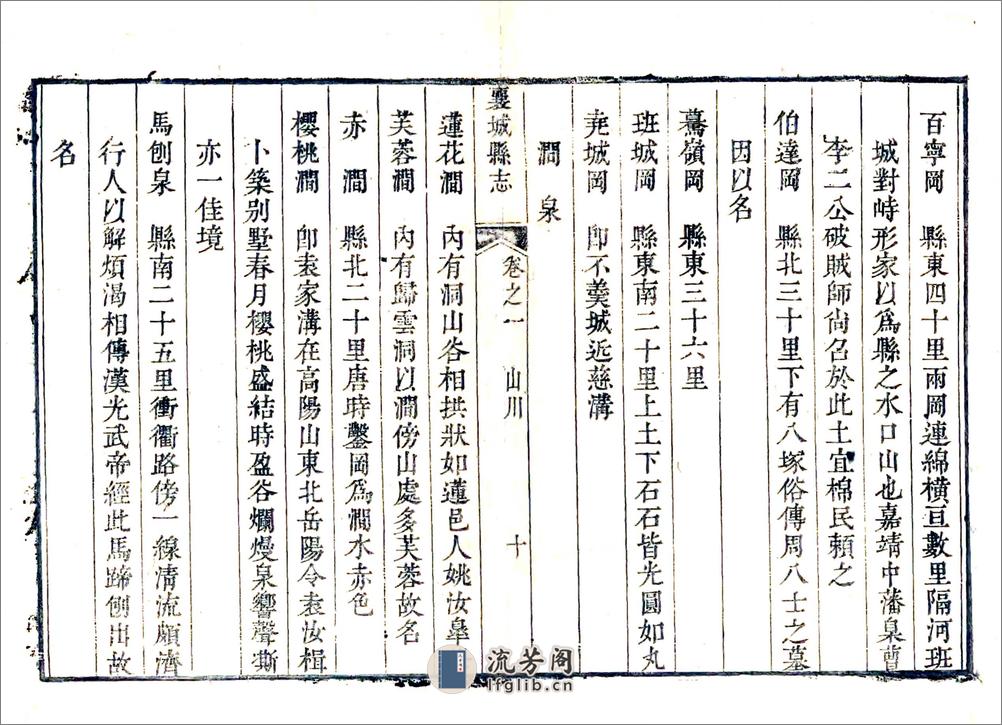 百寧岡　縣東四十里兩岡連綿橫亘數里隔河班
城對峙形家以爲縣之水口山也嘉靖中藩臬曹
李二公破賊師尚名於此土宜棉民賴之
伯達岡　縣北三十里下有八塚俗傳周八士之墓
因以名
驀嶺岡　縣東三十六里
班城岡　縣東南二十里上土下石石皆光圓如丸
堯城岡　卽不羹城近慈溝
澗　泉
襄城縣志　卷之一　山川　十
蓮花澗　內有洞山谷相拱狀如蓮邑人姚汝皐
芙蓉澗　內有歸雲洞以澗傍山處多芙蓉故名
赤　澗　縣北二十里唐時鑿岡爲澗水赤色
櫻桃澗　卽袁家溝在高陽山東北岳陽令袁汝楫
卜築别墅春月櫻桃盛結時盈谷爛熳泉響聲嘶
亦一佳境
馬刨泉　縣南二十五里衝衢路傍一線清流頗濟
行人以解煩渴相傳漢光武帝經此馬蹄刨出故
名
流芳阁
lfglib.cn